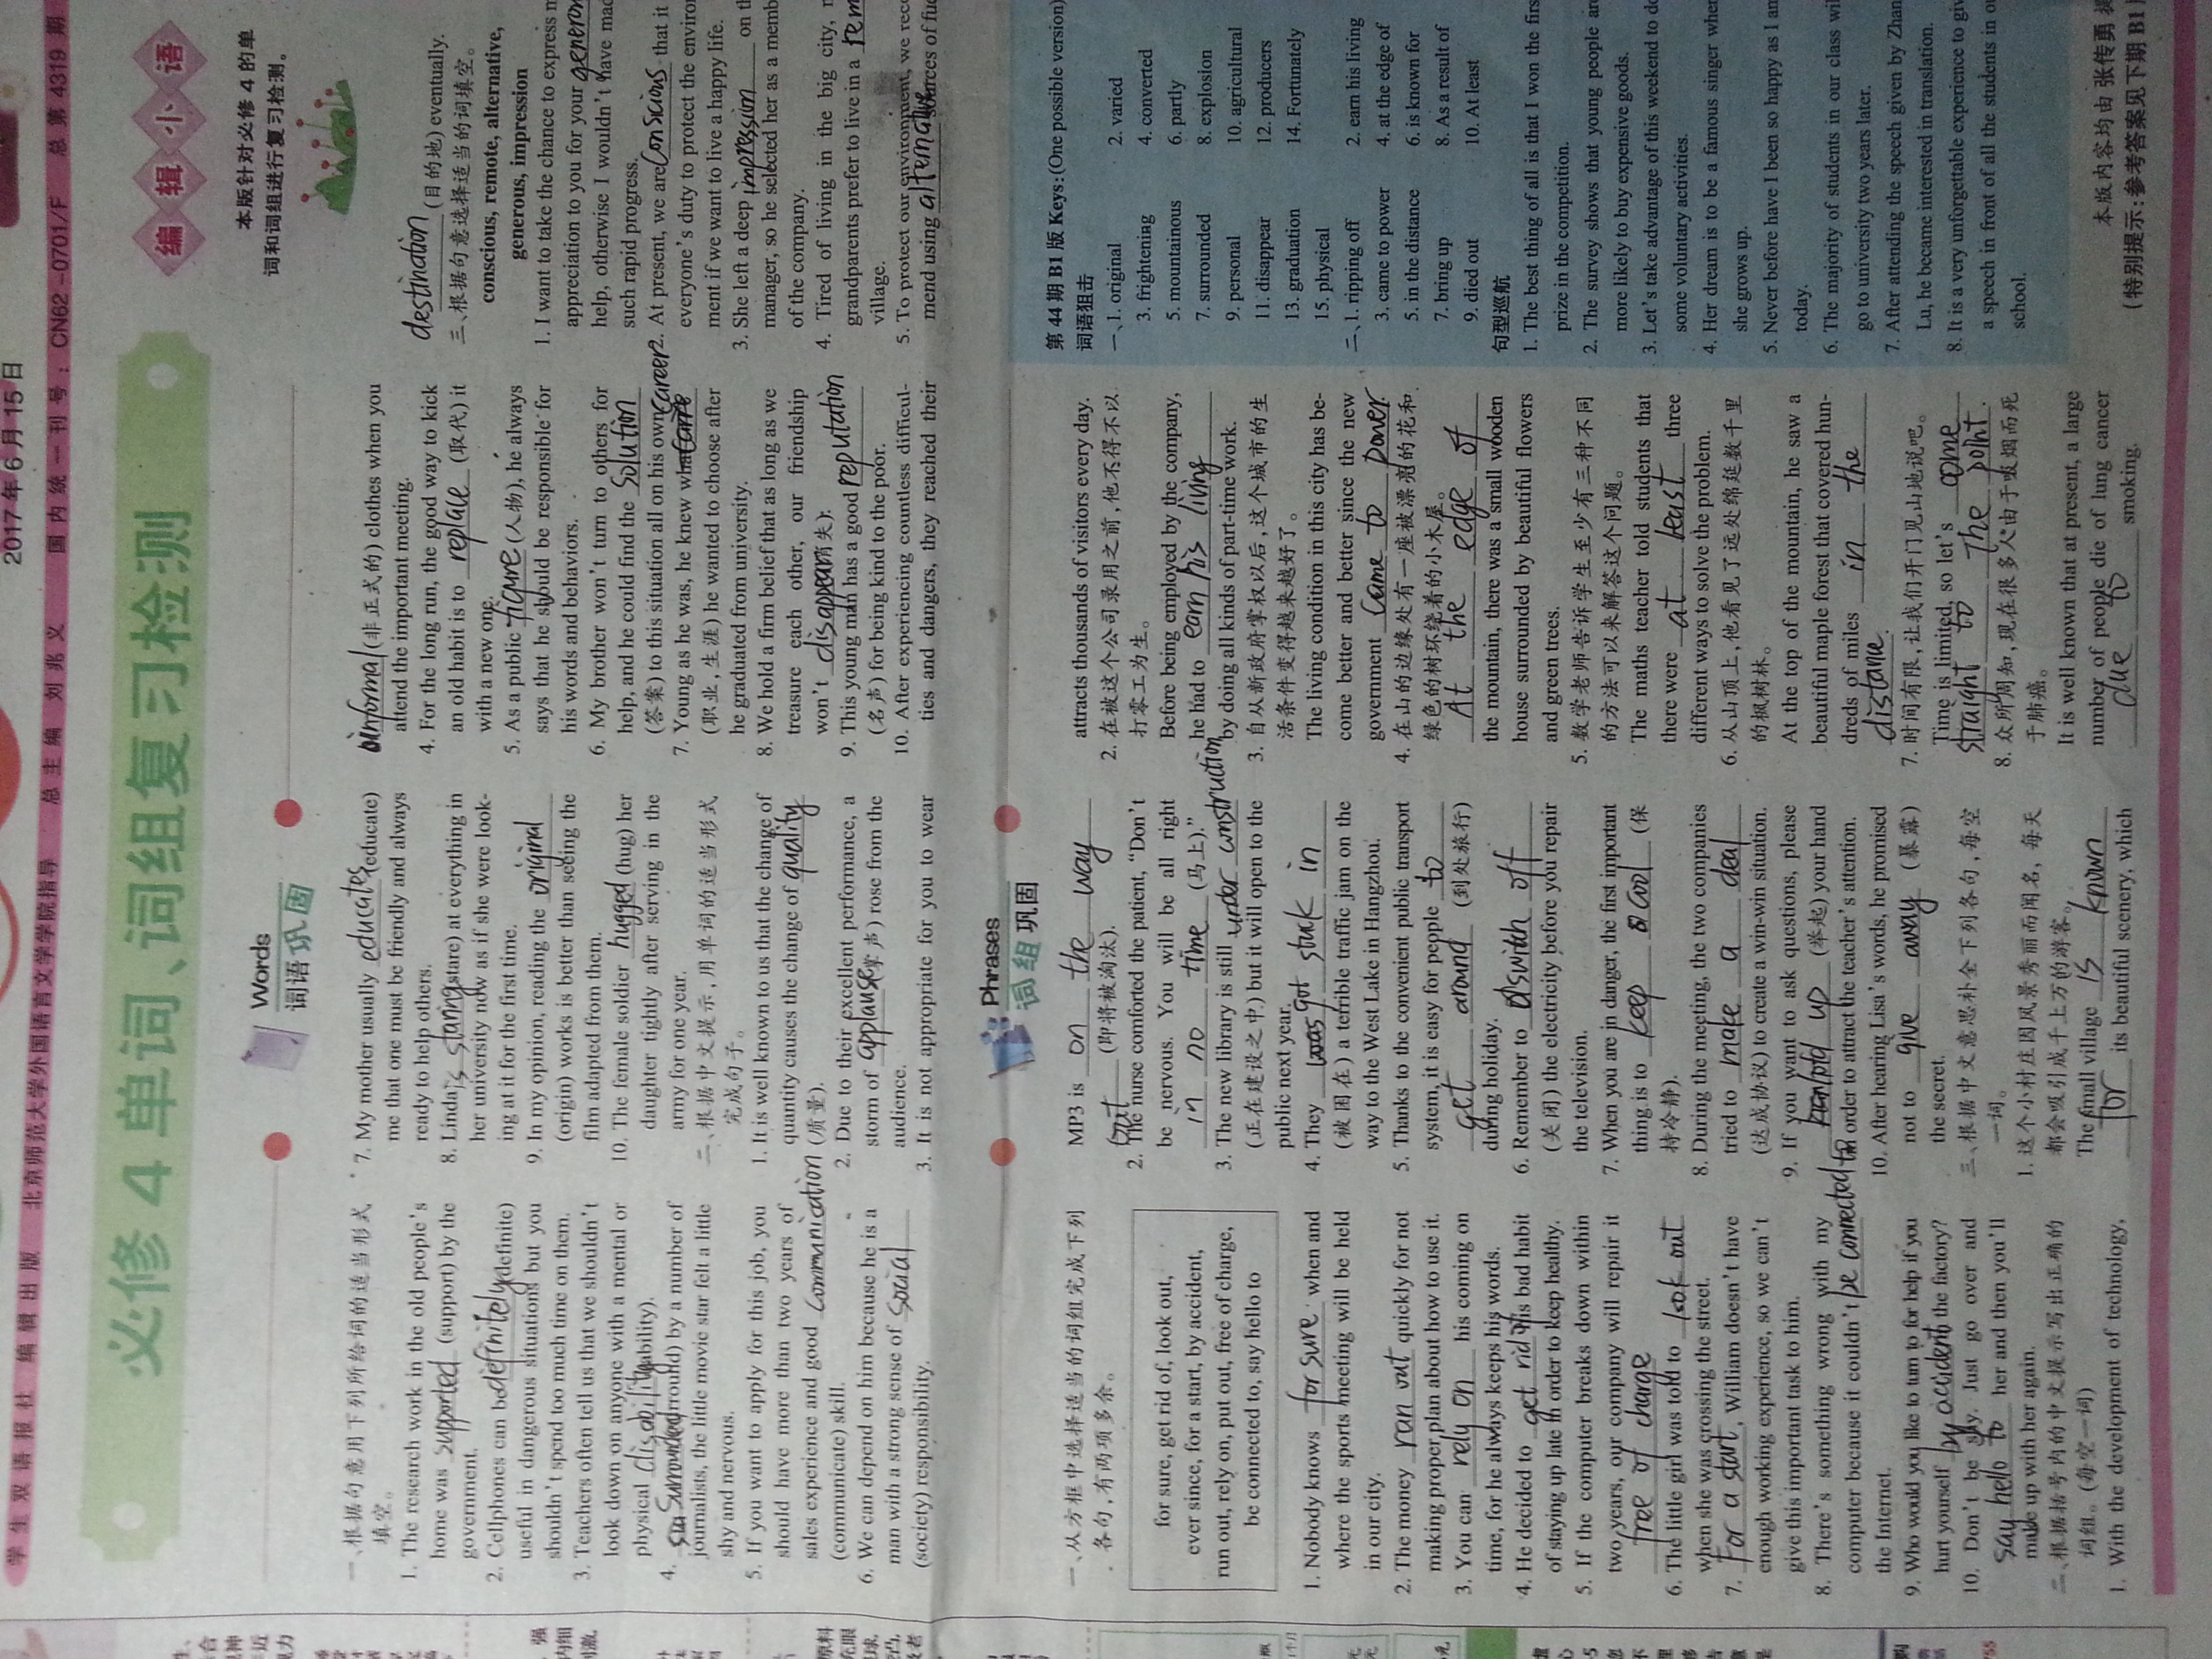 2017年6月15日
学生双语报社 编辑出版 北京师范大学外国语言文学学院指导 总主编 刘兆义 国内统一刊号：CN62-0701/F 总第4319期
必修4单词、词组复习检测
编辑小语
本版针对必修4的单
词和词组进行复习检测。
Words
词语巩固
一、根据句意用下列所给词的适当形式
填空。
1. The research work in the old people's
home was supported (support) by the
government.
2. Cellphones can be definitely (definite)
useful in dangerous situations but you
shouldn't spend too much time on them.
3. Teachers often tell us that we shouldn't
look down on anyone with a mental or
physical disability (ability).
4. Surrounded (surround) by a number of
journalists, the little movie star felt a little
shy and nervous.
5. If you want to apply for this job, you
should have more than two years of
sales experience and good communication
(communicate) skill.
6. We can depend on him because he is a
man with a strong sense of social
(society) responsibility.
7. My mother usually educates (educate)
me that one must be friendly and always
ready to help others.
8. Linda is staring (stare) at everything in
her university now as if she were look-
ing at it for the first time.
9. In my opinion, reading the original
(origin) works is better than seeing the
film adapted from them.
10. The female soldier hugged (hug) her
daughter tightly after serving in the
army for one year.
二、根据中文提示，用单词的适当形式
完成句子。
1. It is well known to us that the change of
quantity causes the change of quality
(质量).
2. Due to their excellent performance, a
storm of applause (掌声) rose from the
audience.
3. It is not appropriate for you to wear
informal (非正式的) clothes when you
attend the important meeting.
4. For the long run, the good way to kick
an old habit is to replace (取代) it
with a new one.
5. As a public figure (人物), he always
says that he should be responsible for
his words and behaviors.
6. My brother won't turn to others for
help, and he could find the solution
(答案) to this situation all on his own.
7. Young as he was, he knew what career
(职业，生涯) he wanted to choose after
he graduated from university.
8. We hold a firm belief that as long as we
treasure each other, our friendship
won't disappear (消失).
9. This young man has a good reputation
(名声) for being kind to the poor.
10. After experiencing countless difficul-
ties and dangers, they reached their
destination (目的地) eventually.
三、根据句意选择适当的词填空。
conscious, remote, alternative,
generous, impression
1. I want to take the chance to express
appreciation to you for your
help, otherwise I wouldn't have
such rapid progress.
2. At present, we are consicious that it
everyone's duty to protect the environ
ment if we want to live a happy life.
3. She left a deep impression on
manager, so he selected her as a memb
of the company.
4. Tired of living in the big city,
grandparents prefer to live in a rem
village.
5. To protect our environment, we reco
mend using alternative sources of
Phrases
词组巩固
一、从方框中选择适当的词组完成下列
各句，有两项多余。
for sure, get rid of, look out,
ever since, for a start, by accident,
run out, rely on, put out, free of charge,
be connected to, say hello to
1. Nobody knows for sure when and
where the sports meeting will be held
in our city.
2. The money ran out quickly for not
making proper plan about how to use it.
3. You can rely on his coming on
time, for he always keeps his words.
4. He decided to get rid of his bad habit
of staying up late in order to keep healthy.
5. If the computer breaks down within
two years, our company will repair it
free of charge
6. The little girl was told to look out
when she was crossing the street.
7. For a start, William doesn't have
enough working experience, so we can't
give this important task to him.
8. There's something wrong with my
computer because it couldn't be connected to
the Internet.
9. Who would you like to turn to for help if you
hurt yourself by accident the factory?
10. Don't be shy. Just go over and
say hello to her and then you'll
make up with her again.
二、根据括号内的中文提示写出正确的
词组。(每空一词)
1. With the development of technology,
MP3 is on the way
out (即将被淘汰).
2. The nurse comforted the patient, "Don't
be nervous. You will be all right
in no time (马上)."
3. The new library is still under construction
(正在建设之中) but it will open to the
public next year.
4. They got stuck in
(被困在) a terrible traffic jam on the
way to the West Lake in Hangzhou.
5. Thanks to the convenient public transport
system, it is easy for people to
get around (到处旅行)
during holiday.
6. Remember to switch off
(关闭) the electricity before you repair
the television.
7. When you are in danger, the first important
thing is to keep cool (保
持冷静).
8. During the meeting, the two companies
tried to make a deal
(达成协议) to create a win-win situation.
9. If you want to ask questions, please
up (举起) your hand
in order to attract the teacher's attention.
10. After hearing Lisa's words, he promised
not to give away (暴露)
the secret.
三、根据中文意思补全下列各句，每空
一词。
1. 这个小村庄因风景秀丽而闻名，每天
都会吸引成千上万的游客。
The small village is known
for its beautiful scenery, which
attracts thousands of visitors every day.
2. 在被这个公司录用之前，他不得不以
打零工为生。
Before being employed by the company,
he had to earn his living
by doing all kinds of part-time work.
3. 自从新政府掌权以后，这个城市的生
活条件变得越来越好了。
The living condition in this city has be-
come better and better since the new
government came to power.
4. 在山的边缘处有一座被漂亮的花和
绿色的树环绕着的小木屋。
At the edge of
the mountain, there was a small wooden
house surrounded by beautiful flowers
and green trees.
5. 数学老师告诉学生至少有三种不同
的方法可以来解答这个问题。
The maths teacher told students that
there were at least three
different ways to solve the problem.
6. 从山顶上，他看见了远处绵延数千里
的枫树林。
At the top of the mountain, he saw a
beautiful maple forest that covered hun-
dreds of miles in the
distance.
7. 时间有限，让我们开门见山地说吧。
Time is limited, so let's come
straight to the point.
8. 众所周知，现在很多人由于吸烟而死
于肺癌。
It is well known that at present, a large
number of people die of lung cancer
due to smoking.
第44期B1版Keys:(One possible version)
词语狙击
一、1. original 2. varied
3. frightening 4. converted
5. mountainous 6. partly
7. surrounded 8. explosion
9. personal 10. agricultural
11. disappear 12. producers
13. graduation 14. Fortunately
15. physical
二、1. ripping off 2. earn his living
3. came to power 4. at the edge of
5. in the distance 6. is known for
7. bring up 8. As a result of
9. died out 10. At least
句型巡航
1. The best thing of all is that I won the firs
prize in the competition.
2. The survey shows that young people are
more likely to buy expensive goods.
3. Let's take advantage of this weekend to do
some voluntary activities.
4. Her dream is to be a famous singer when
she grows up.
5. Never before have I been so happy as I am
today.
6. The majority of students in our class wil
go to university two years later.
7. After attending the speech given by Zhan
Lu, he became interested in translation.
8. It is a very unforgettable experience to giv
a speech in front of all the students in ou
school.
本版内容均由 张传勇
(特别提示：参考答案见下期B1